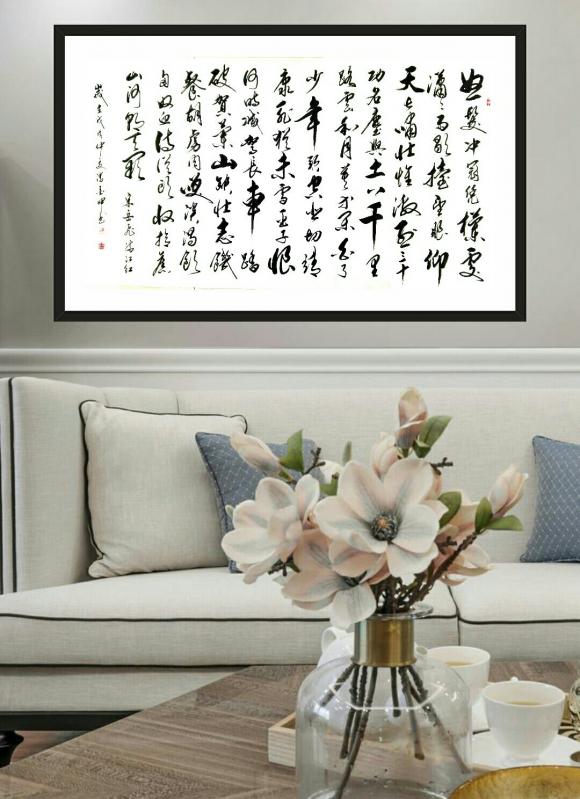 怒髮冲冠凭欄處
瀟瀟雨歇擡望眼仰
天長嘯壯懷激烈三十
功名塵與土八千里
路雲和月莫等閑白了
少年頭空悲切靖
康恥猶未雪臣子恨
何時滅駕長車踏
破賀蘭山缺壯志饑
餐胡虜肉笑談渴飲
匈奴血待從頭收拾舊
山河朝天闕 宋岳飛滿江紅